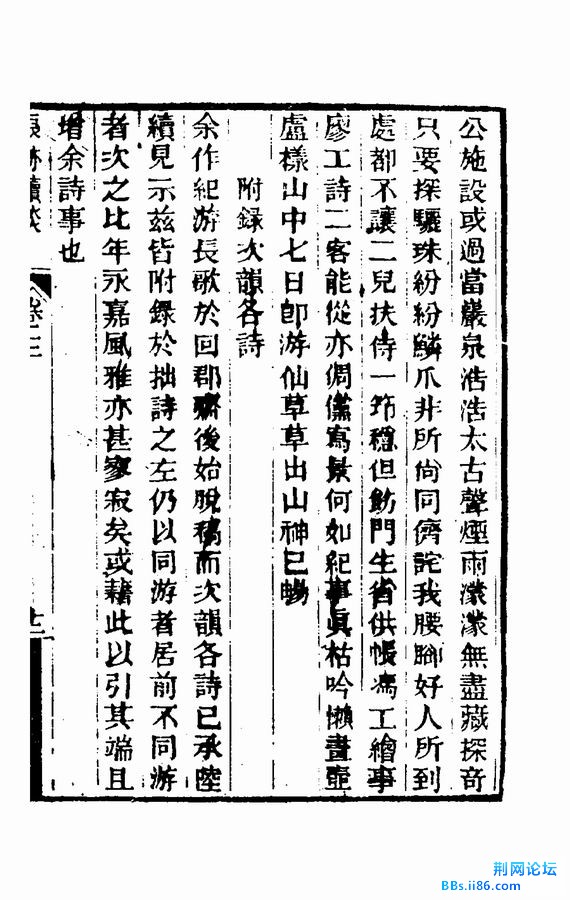 公施設或過當巖泉浩浩太古聲煙雨濛濛無盡藏探奇
只要探驪珠紛紛鱗爪非所尙同儕詫我腰腳好人所到
處都不讓二兒扶侍一筇穩但飭門生省供帳馮工繪事
廖工詩二客能從亦倜儻寫景何如紀事眞枯吟懶晝壺
盧樣山中七日卽游仙草草出山神已暢
附録次韻各詩
余作紀游長歌於回郡齋後始脫稿而次韻各詩已承陸
續見示茲皆附錄於拙詩之左仍以同游者居前不同游
者次之比年永嘉風雅亦甚寥寂矣或藉此以引其端且
增余詩事也
浪跡續談
卷二
荆网论坛
BBs.ii86.com